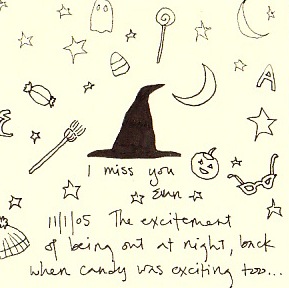 I miss you
Evan
11/1/05 The excitement
of being out at night, back
when candy was exciting too...